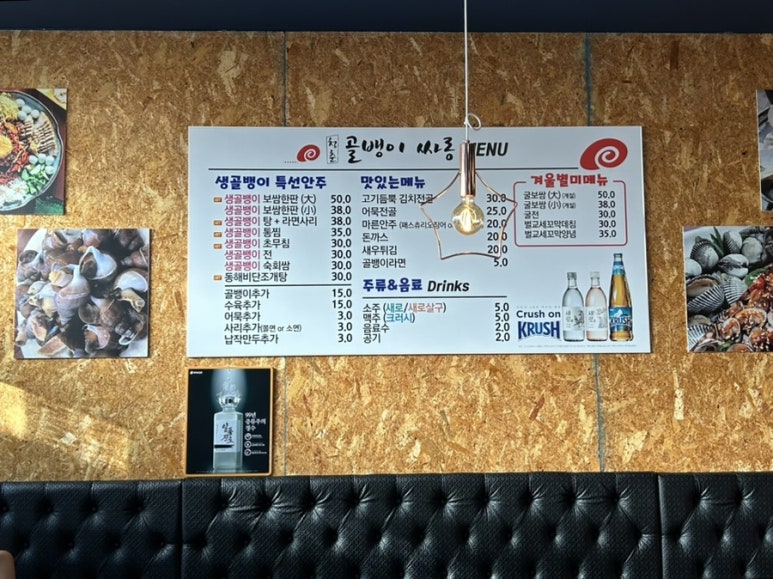 골뱅이 싸롱 MENU
생골뱅이 특선안주
생골뱅이 보쌈한판 (大) 50.0
생골뱅이 보쌈한판 (小) 38.0
생골뱅이 탕 + 라면사리 38.0
생골뱅이 통찜 35.0
생골뱅이 초무침 30.0
생골뱅이 전 30.0
생골뱅이 숙회쌈 30.0
동해비단조개탕 30.0
골뱅이추가 15.0
수육추가 15.0
어묵추가 3.0
사리추가(쫄면 or 소면) 3.0
납작만두추가 3.0
맛있는메뉴
고기듬뿍 김치전골 30.0
어묵전골 25.0
마른안주 20.0
돈까스 20.0
새우튀김 20.0
골뱅이라면 5.0
주류&음료 Drinks
소주 (새로/새로살구) 5.0
맥주 (크러시) 5.0
음료수 2.0
공기 2.0
겨울별미메뉴
굴보쌈 (大) (계절) 50.0
굴보쌈 (小) (계절) 38.0
굴전 30.0
벌교세꼬막데침 30.0
벌교세꼬막양념 35.0
Crush on
KRUSH
KRUSH
99년
증류주의
정수
일품진로